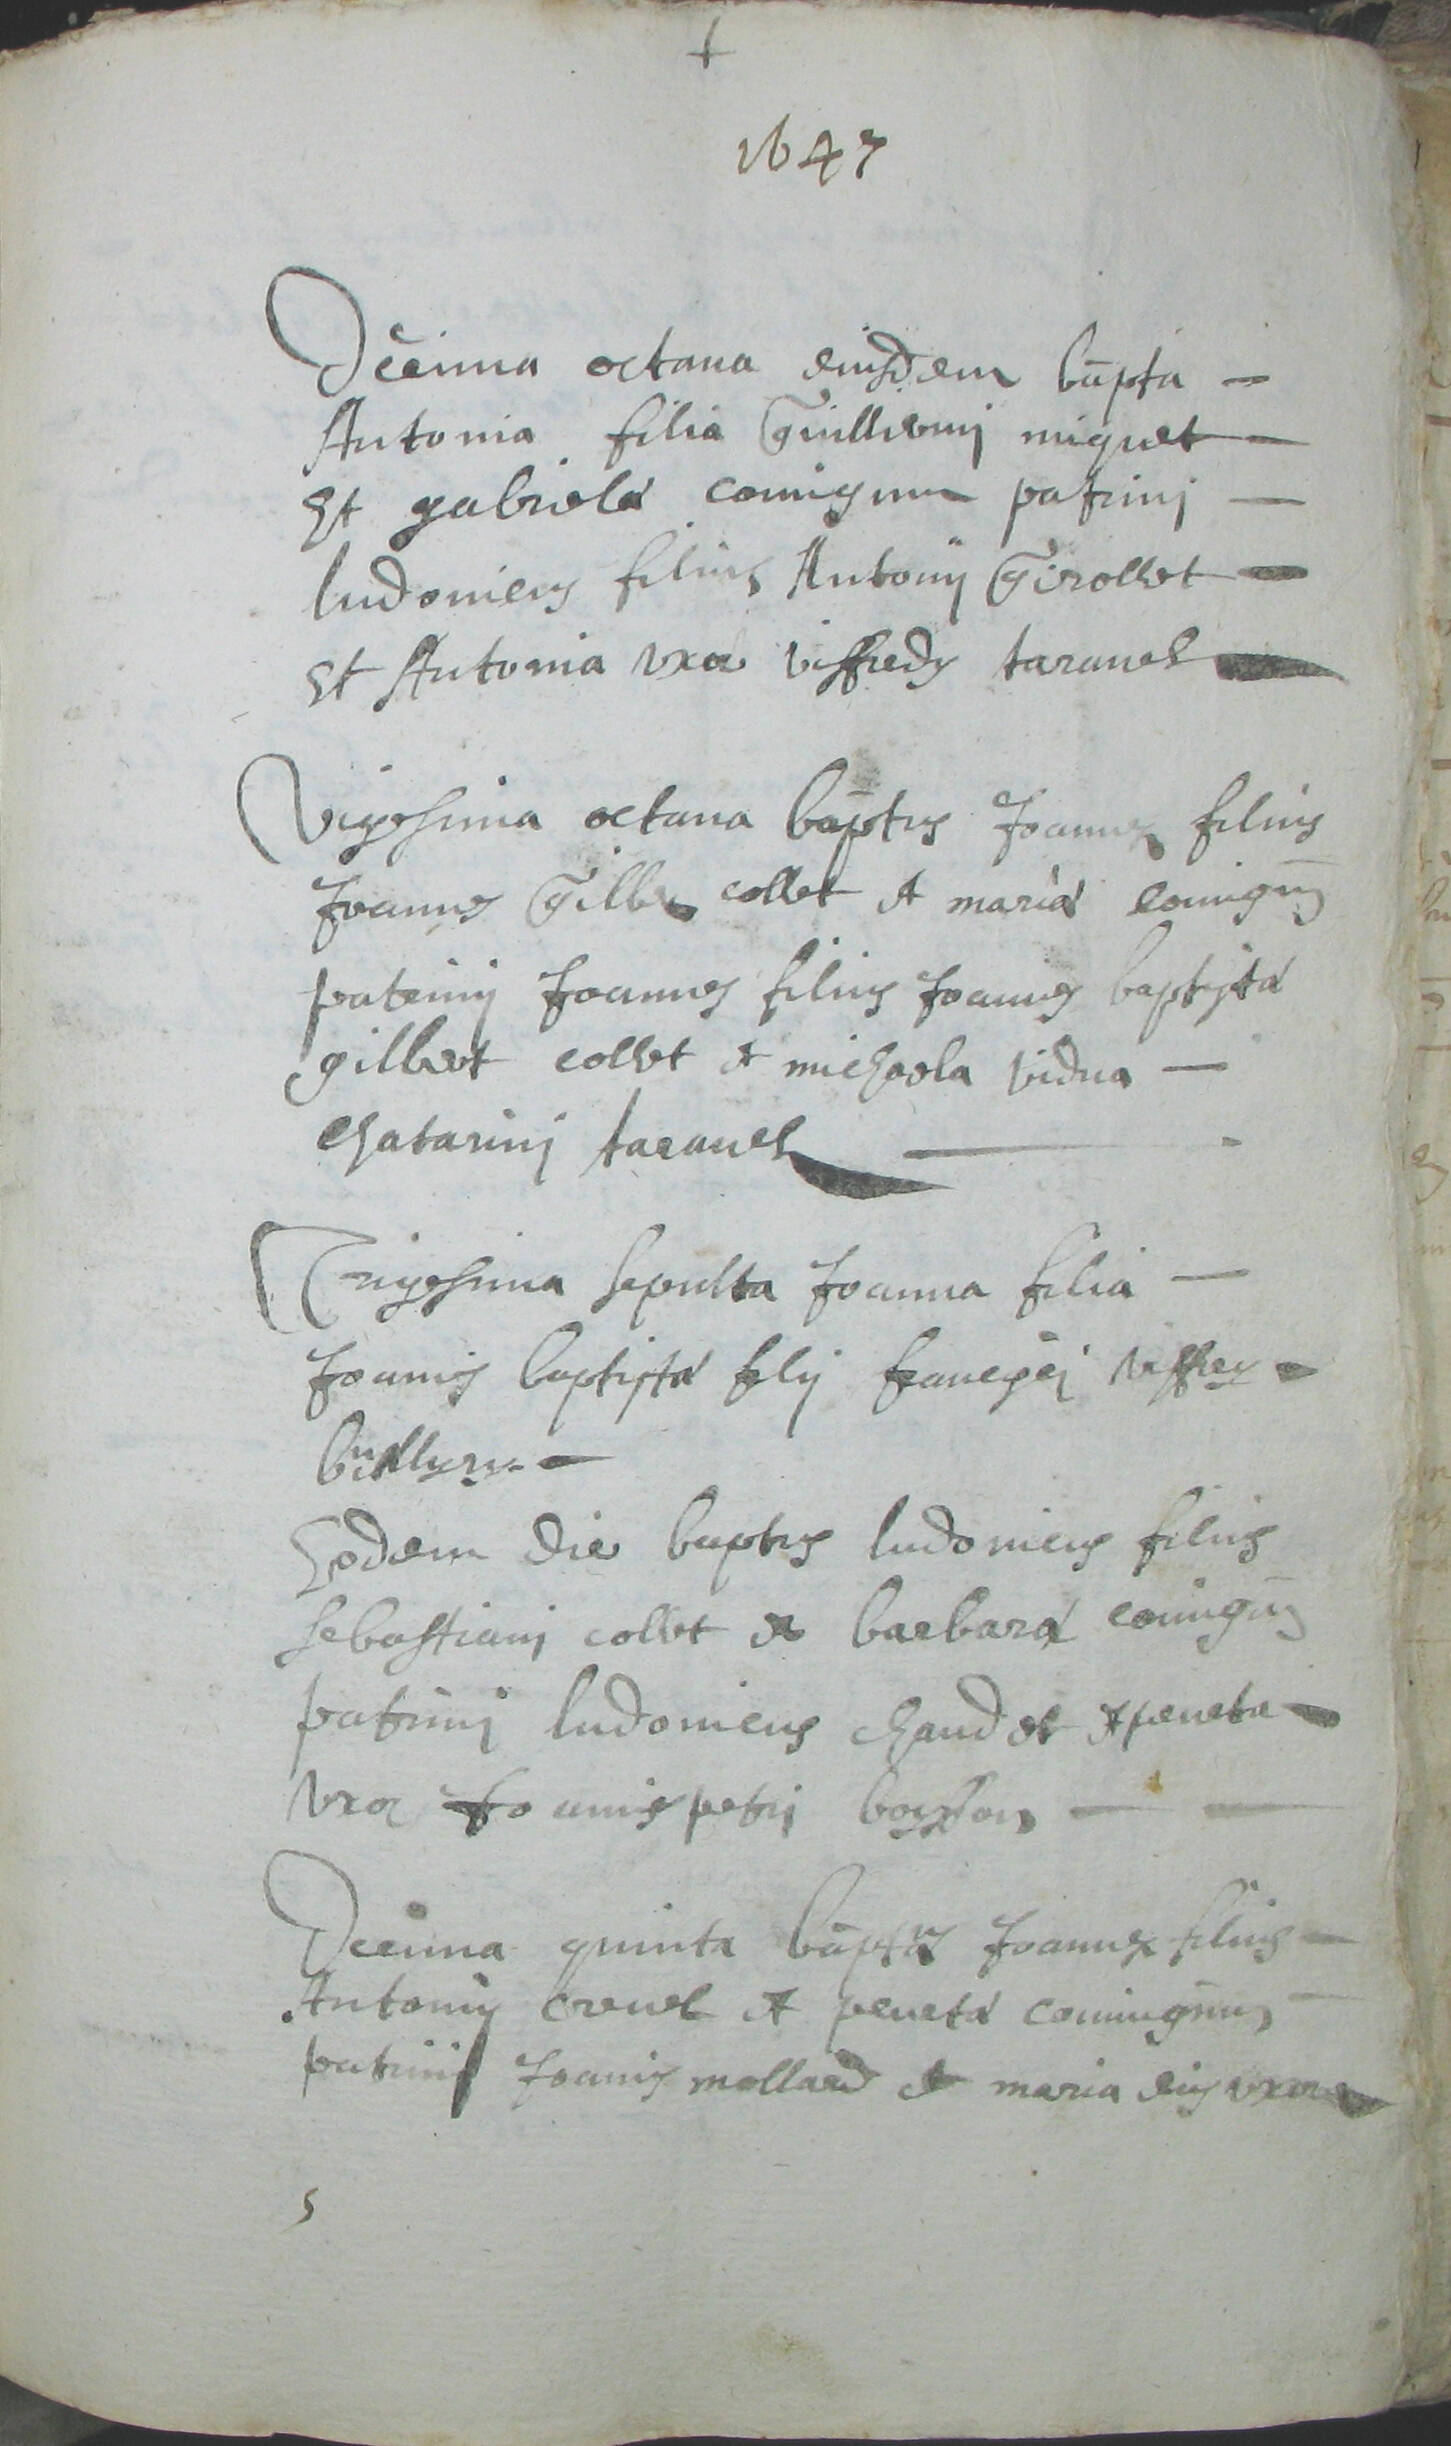 1647
Decima octaua eiusdem bāpta
Antonia filia Guillermj miguet
Et gabriela coniugum patrinj
ludouicus filius Antonij Girollet
Et Antonia vxor viffredj tarauel
Vigesima octaua bāptus Joannes filius
Joannis Gilbert collet et maria coniugū
patrinj Joannes filius Joannis baptista
gilbert collet et michaela vidua
Chatarinj tarauel
Trigesima sepulta Joanna filia
Joannis baptista filij francesci viffrey
Eodem die baptus ludouicus filius
sebastianj collet et barbara coniugū
patrinj ludouicus chaudet et peneta
vxor Joannis petri
Decima quinta bāptus Joannes filius
Antonij creuel et peneta coniugum
patrinj Joannis mollard et maria eius vxor